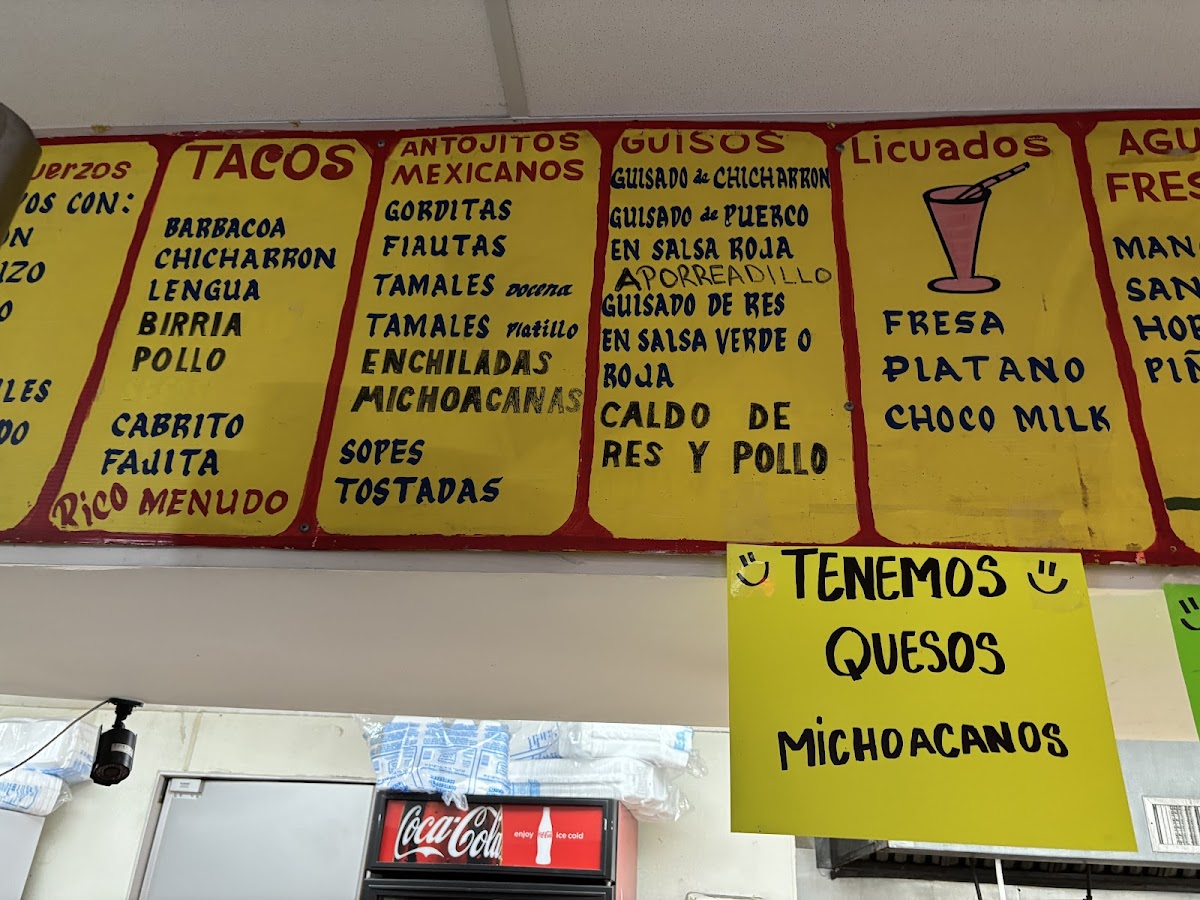 CON:
TACOS
BARBACOA
CHICHARRON
LENGUA
BIRRIA
POLLO
CABRITO
FAJITA
RICO MENUDO
ANTOJITOS
MEXICANOS
GORDITAS
FIAUTAS
TAMALES Docena
TAMALES Platillo
ENCHILADAS
MICHOACANAS
SOPES
TOSTADAS
GUISOS
GUISADO de CHICHARRON
GUISADO de PUERCO
EN SALSA ROJA
APORREADILLO
GUISADO DE RES
EN SALSA VERDE O
ROJA
CALDO DE
RES Y POLLO
Licuados
FRESA
PLATANO
CHOCO MILK
TENEMOS
QUESOS
MiCHOACANOS
Coca-Cola
enjoy Coca-Cola ice cold